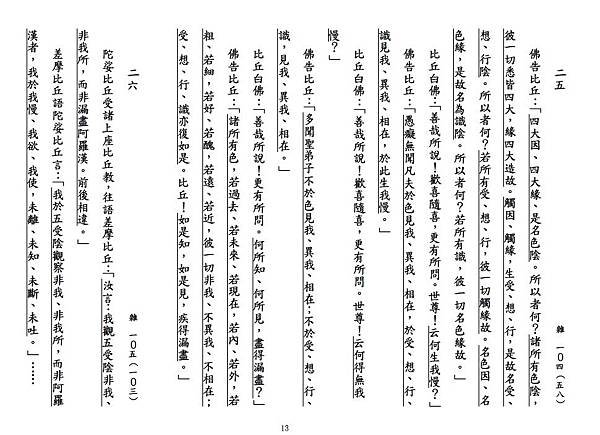 二五　雜　一〇四（五八）
佛告比丘：「四大因、四大緣、是名色陰。所以者何？諸所有色陰，
彼一切悉皆四大，緣四大造故。觸因、觸緣，生受、想、行，是故名受、
想、行陰。所以者何？若所有受、想、行，彼一切觸緣故。名色因、名
色緣，是故名為識陰。所以者何？若所有識，彼一切名色緣故。」
比丘白佛：「善哉所說！歡喜隨喜，更有所問。世尊！云何生我慢？」
佛告比丘：「愚癡無聞凡夫於色見我、異我、相在，於受、想、行、
識見我、異我、相在，於此生我慢。」
比丘白佛：「善哉所說！歡喜隨喜，更有所問。世尊！云何得無我
慢？」
佛告比丘：「多聞聖弟子不於色見我、異我、相在；不於受、想、行、
識，見我、異我、相在。」
比丘白佛：「善哉所說！更有所問。何所知、何所見，盡得漏盡？」
佛告比丘：「諸所有色，若過去、若未來、若現在，若內、若外，若
粗、若細，若好、若醜，若遠、若近，彼一切非我、不異我、不相在；
受、想、行、識亦復如是。比丘！如是知，如是見，疾得漏盡。」
二六　雜　一〇五（一〇三）
陀娑比丘受諸上座比丘教，往語差摩比丘：「汝言：我觀五受陰非我、
非我所，而非漏盡阿羅漢。前後相違。」
差摩比丘語陀娑比丘言：「我於五受陰觀察非我、非我所，而非阿羅
漢者，我於我慢、我欲、我使，未離、未知、未斷、未吐。」……
13